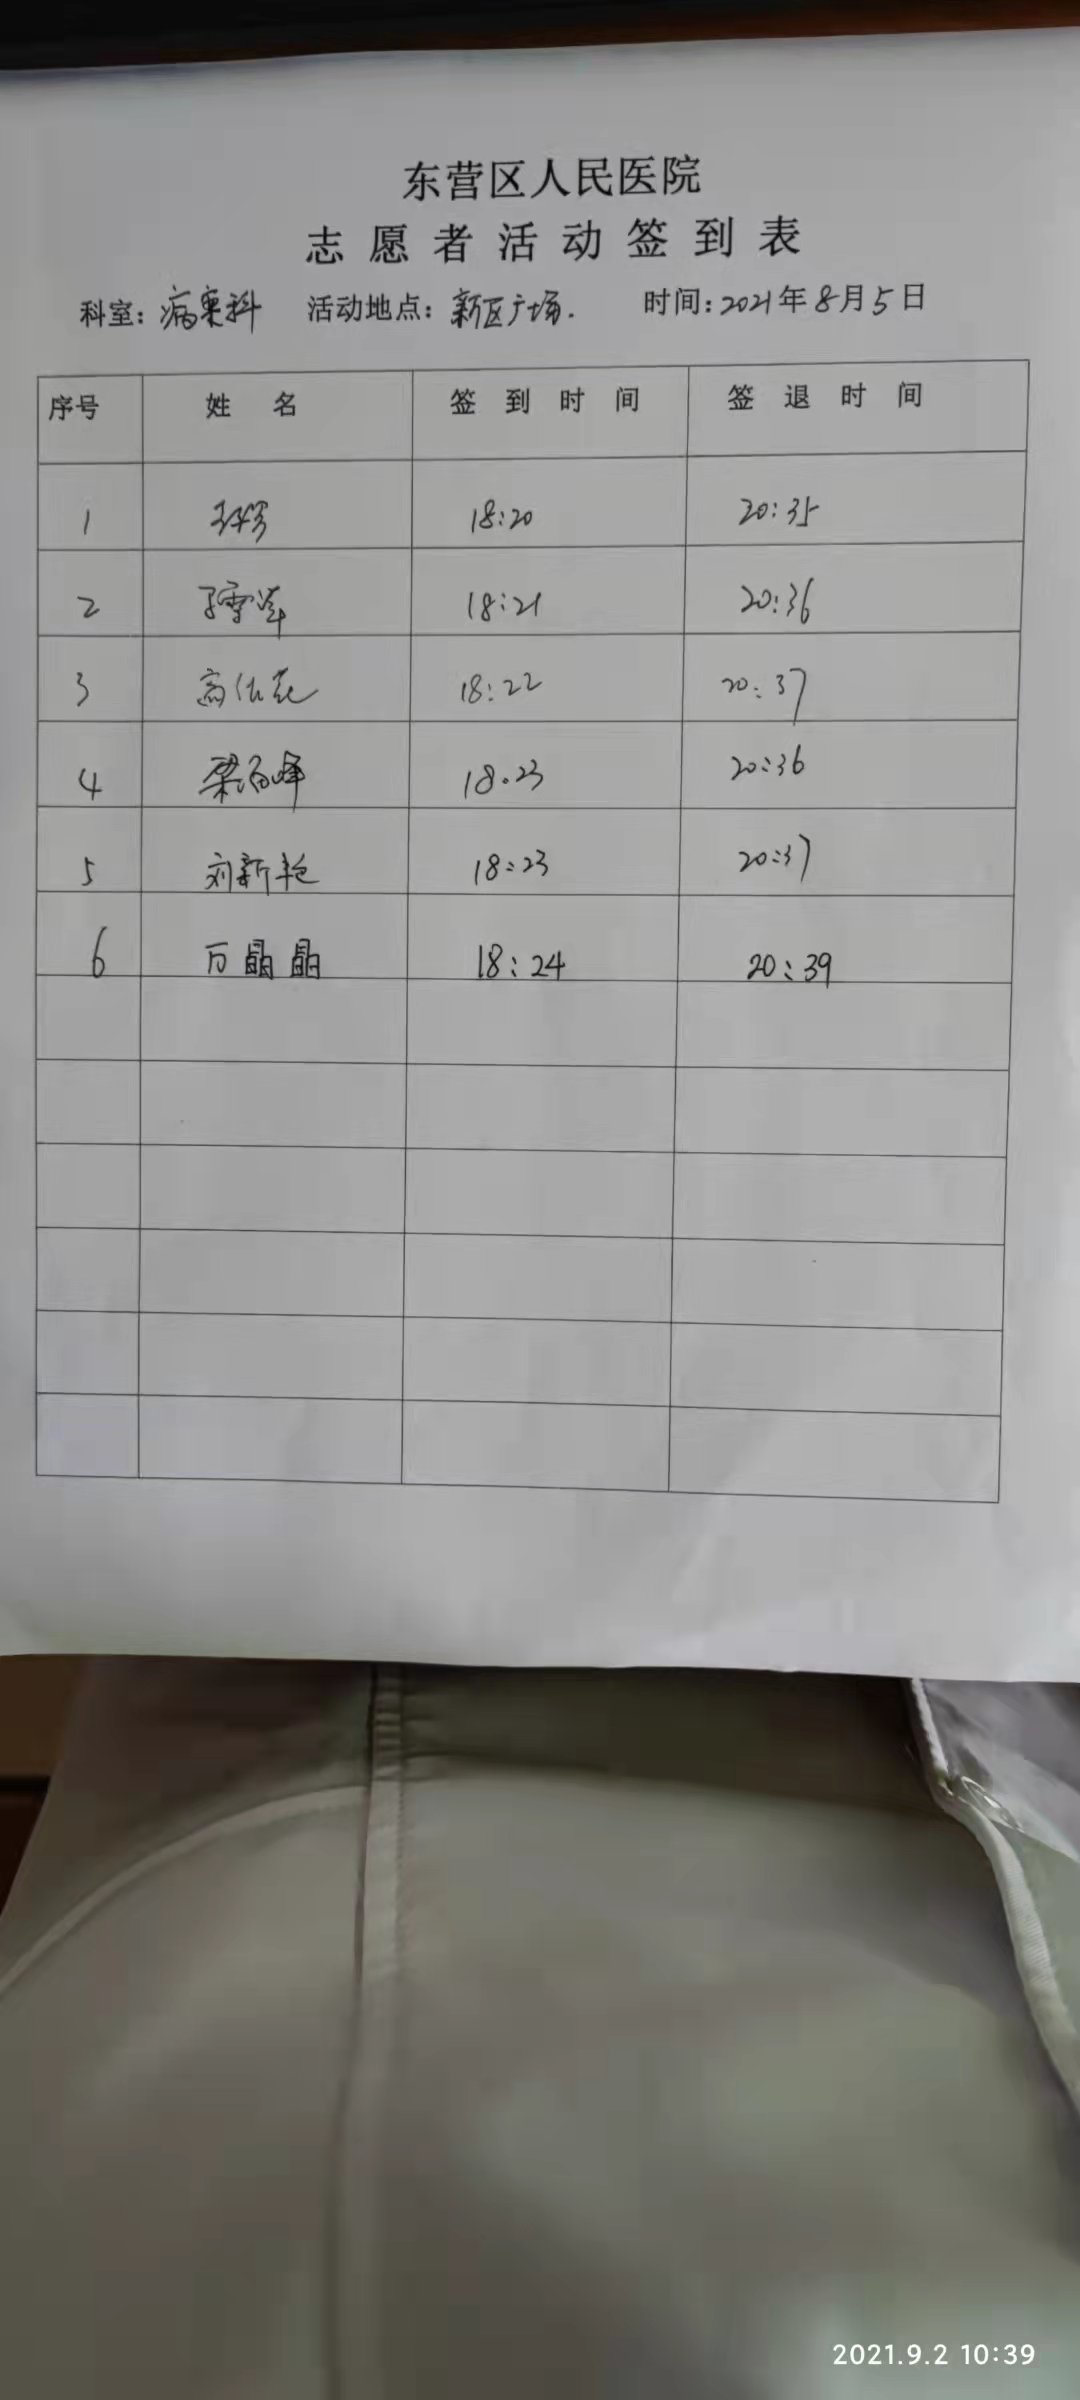 东营区人民医院
志愿者活动签到表
科室: 病案科 活动地点: 新区广场. 时间: 2021年8月5日
序号 姓名 签到时间 签退时间
1 18:20 20:35
2 18:21 20:36
3 18:22 20:37
4 18.23 20:36
5 刘新艳 18:23 20:37
6 万晶晶 18:24 20:39
2021.9.2 10:39